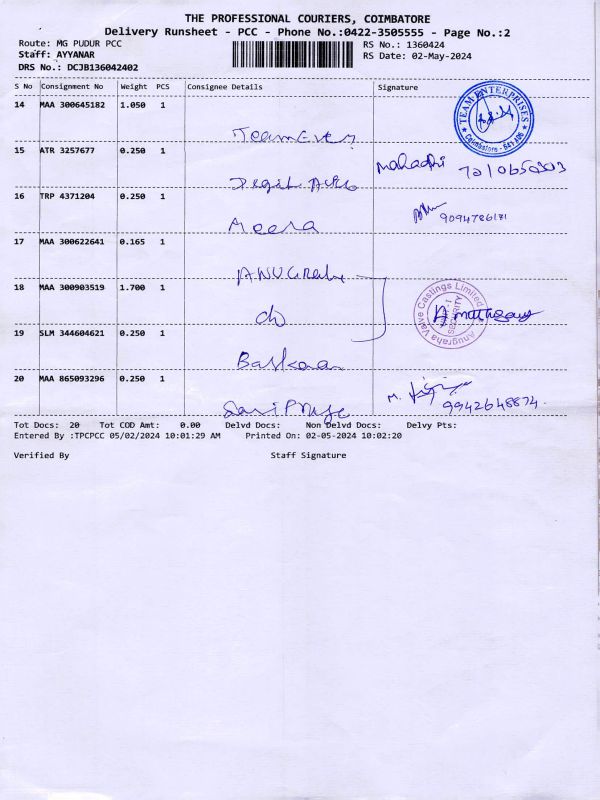 THE PROFESSIONAL COURIERS, COIMBATORE
Delivery Runsheet - PCC - Phone No.:0422-3505555 - Page No.:2
Route: MG PUDUR PCC
RS No.: 1360424
Staff: AYYANAR
RS Date: 02-May-2024
DRS No.: DCJB136042402
S No Consignment No Weight PCS Consignee Details Signature
14 MAA 300645182 1.050 1
TEAM ENTERPRISES
Coimbatore - 641 406
15 ATR 3257677 0.250 1
16 TRP 4371204 0.250 1
Meera
9094786181
17 MAA 300622641 0.165 1
ANUGRah
18 MAA 300903519 1.700 1
do
Anugraha Valve Castings Limited
SECURITY
19 SLM 344604621 0.250 1
Baskaran
20 MAA 865093296 0.250 1
9942648874
Tot Docs: 20 Tot COD Amt: 0.00 Delvd Docs: Non Delvd Docs: Delvy Pts:
Entered By :TPCPCC 05/02/2024 10:01:29 AM Printed On: 02-05-2024 10:02:20
Verified By Staff Signature